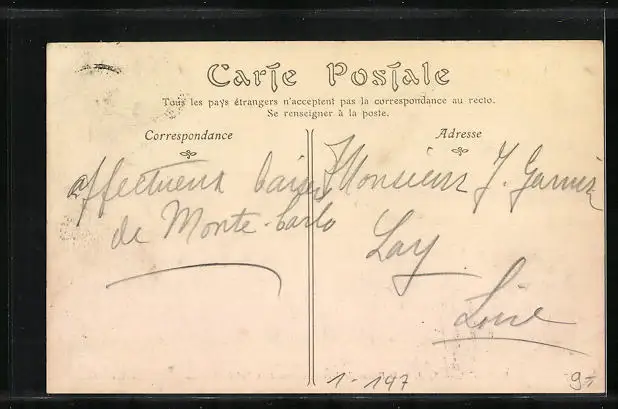 Carte Postale
Tous les pays étrangers n'acceptent pas la correspondance au recto.
Se renseigner à la poste.
Correspondance
Adresse
affectueux baisers
de Monte-Carlo
Monsieur J. Garnier
Lay
Loire
1-147
9-